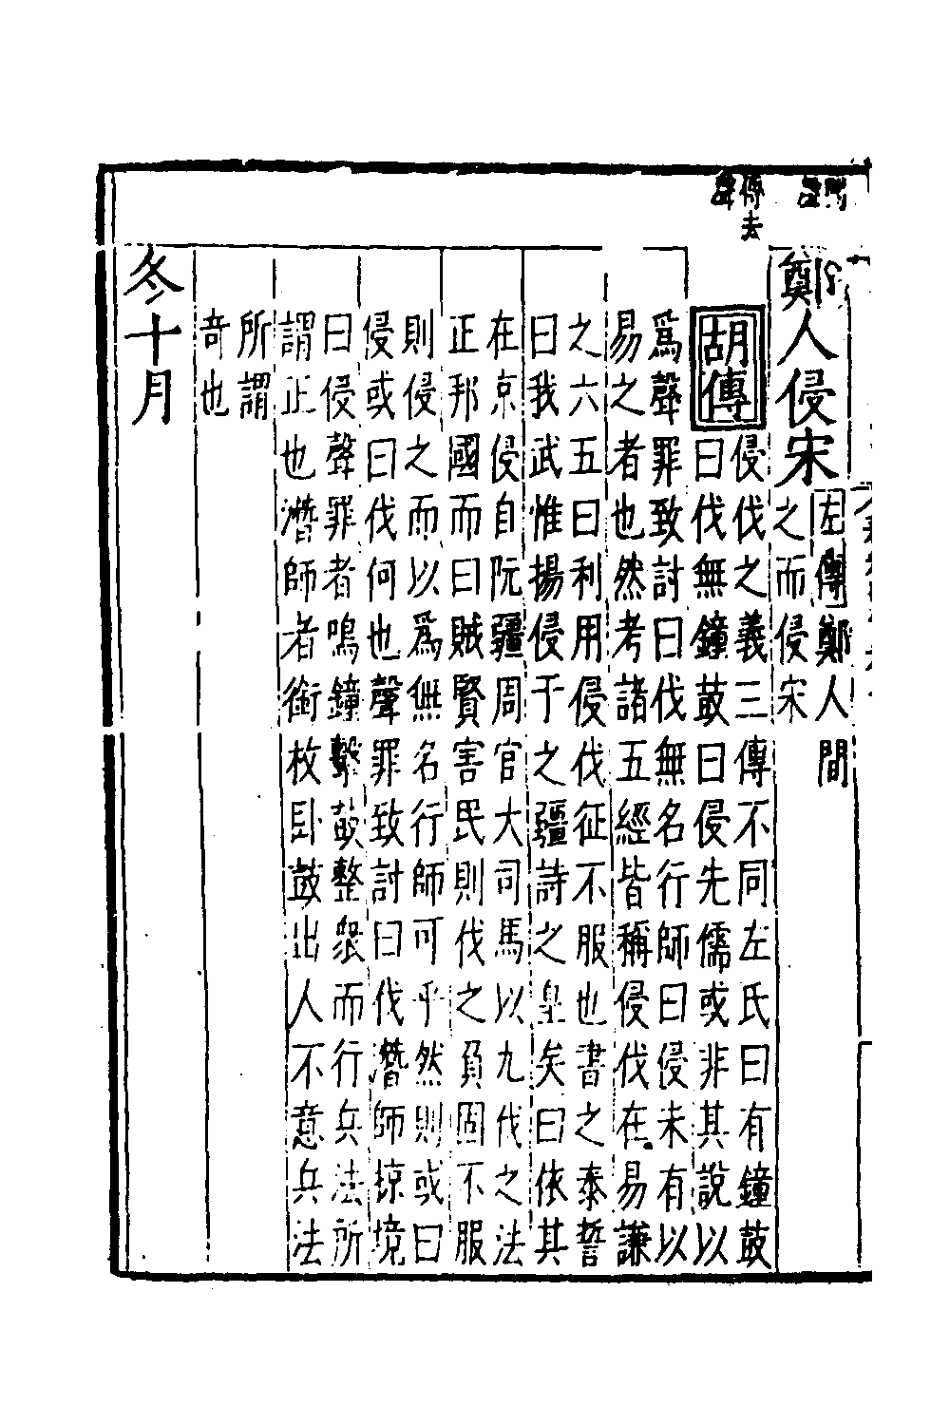 鄭人侵宋
左傳鄭人間
之而侵宋
傳去
聲
胡傳
侵伐之義三傳不同左氏曰有鐘鼓
曰伐無鐘鼓曰侵先儒或非其說以
爲聲罪致討曰伐無名行師曰侵未有以
易之者也然考諸五經皆稱侵伐在易謙
之六五曰利用侵伐征不服也書之泰誓
曰我武惟揚侵于之疆詩之皇矣曰依其
在京侵自阮疆周官大司馬以九伐之法
正邦國而曰賊賢害民則伐之負固不服
則侵之而以爲無名行師可乎然則或曰
侵或曰伐何也聲罪致討曰伐潛師掠境
曰侵聲罪者鳴鐘擊鼓整衆而行兵法所
謂正也潛師者銜枚卧鼓出人不意兵法
所謂
竒也
冬十月